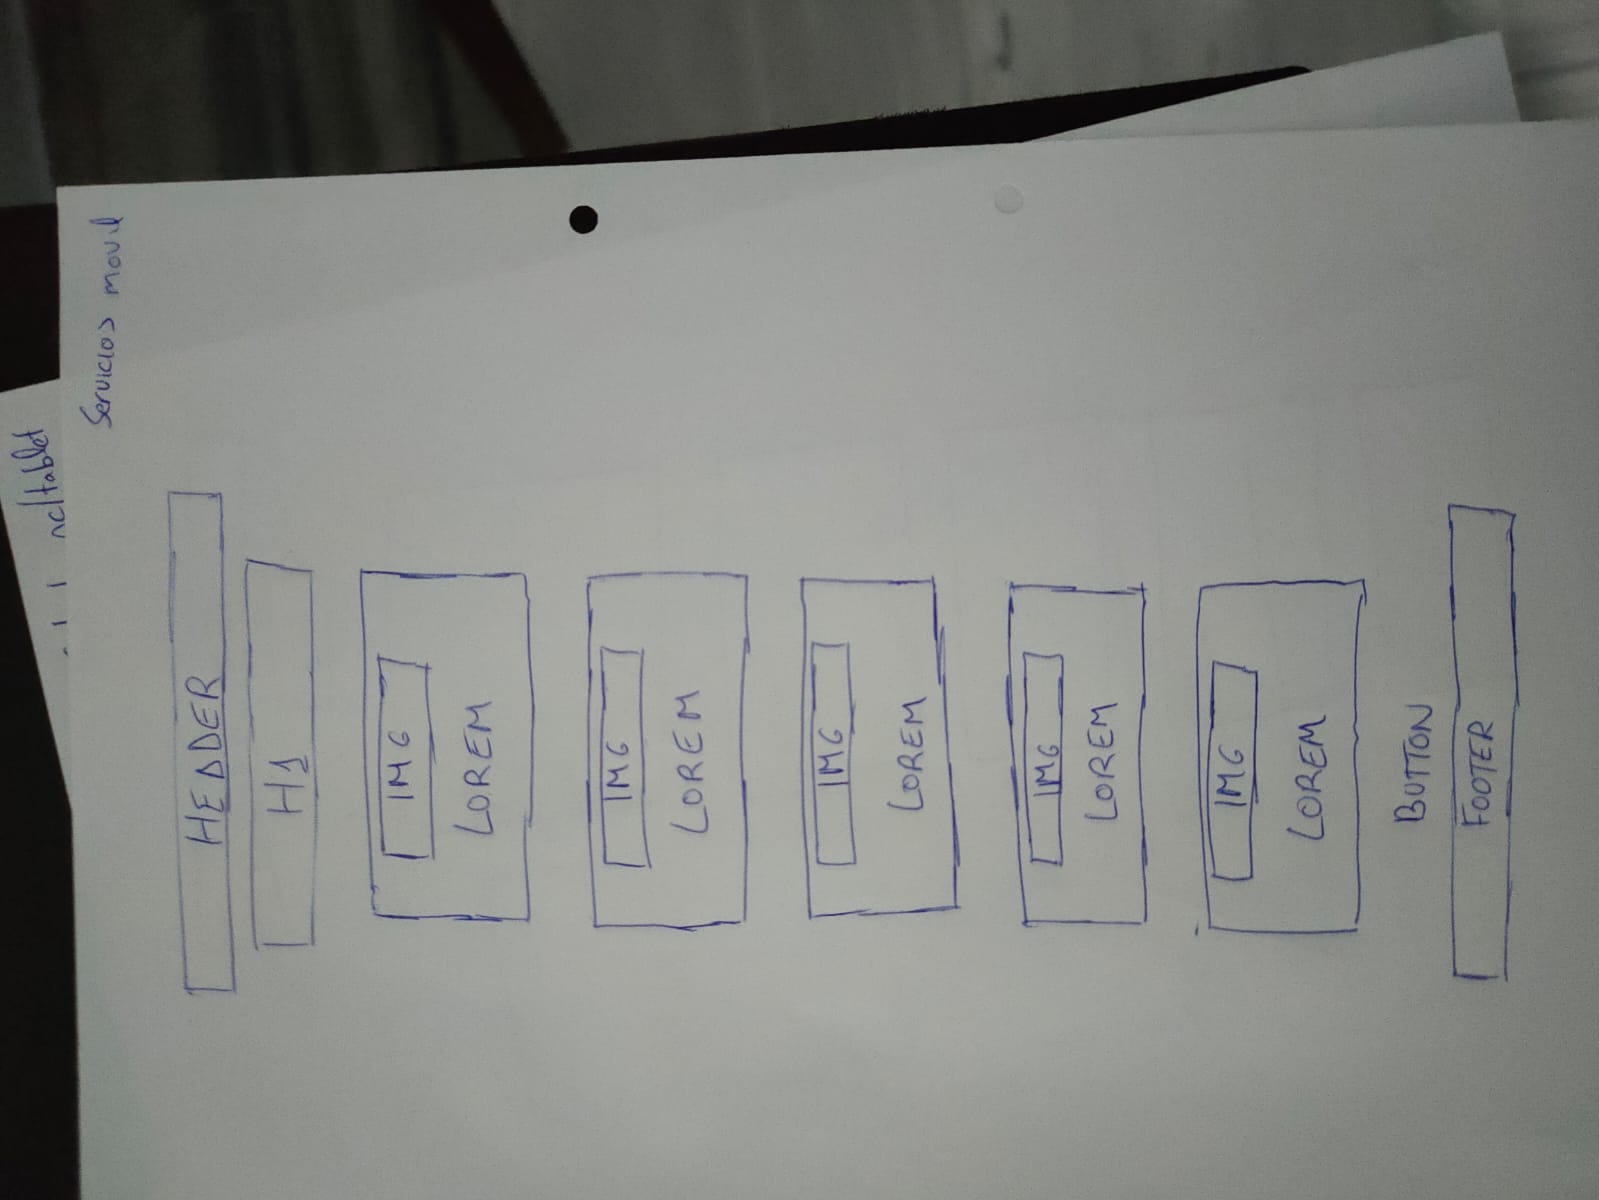 Servicios movil
HEDDER
H1
IMG
LOREM
IMG
LOREM
IMG
LOREM
IMG
LOREM
IMG
LOREM
BUTTON
FOOTER